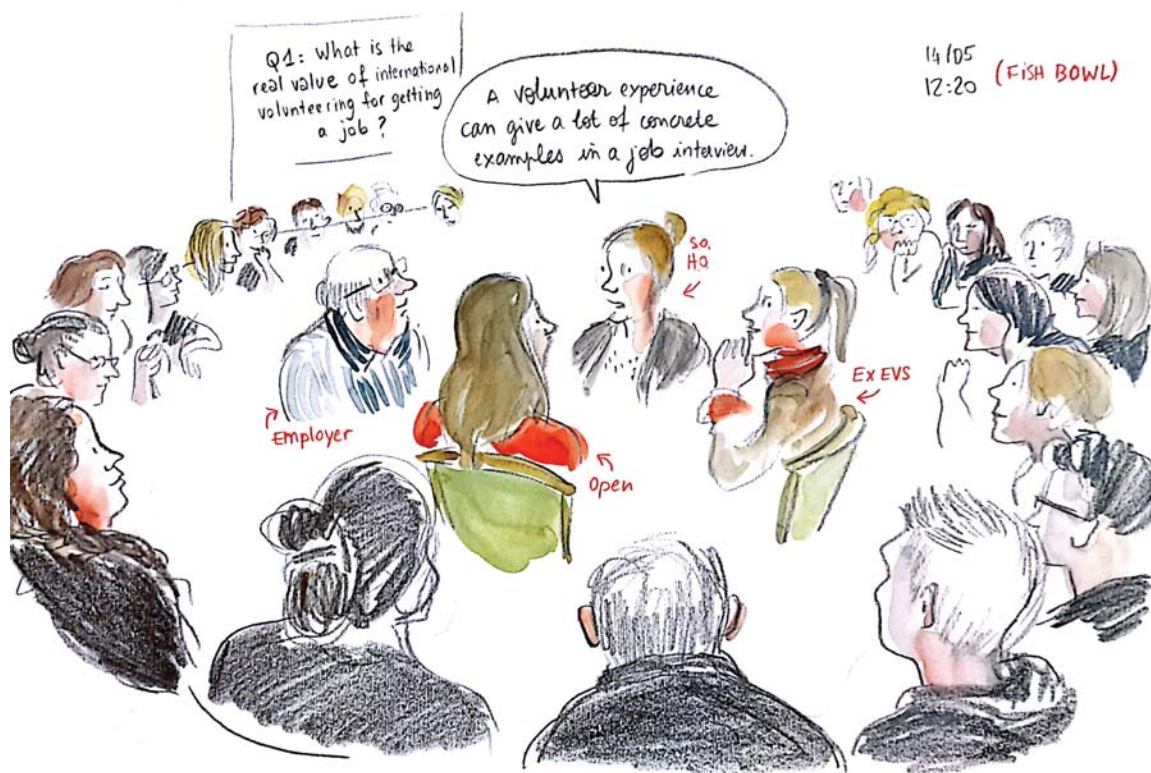 Q1: What is the
real value of international
volunteering for getting
a job?
A volunteer experience
can give a lot of concrete
examples in a job interview.
14/05
12:20 (FISH BOWL)
SO.
HO
Ex EVS
Employer
Open